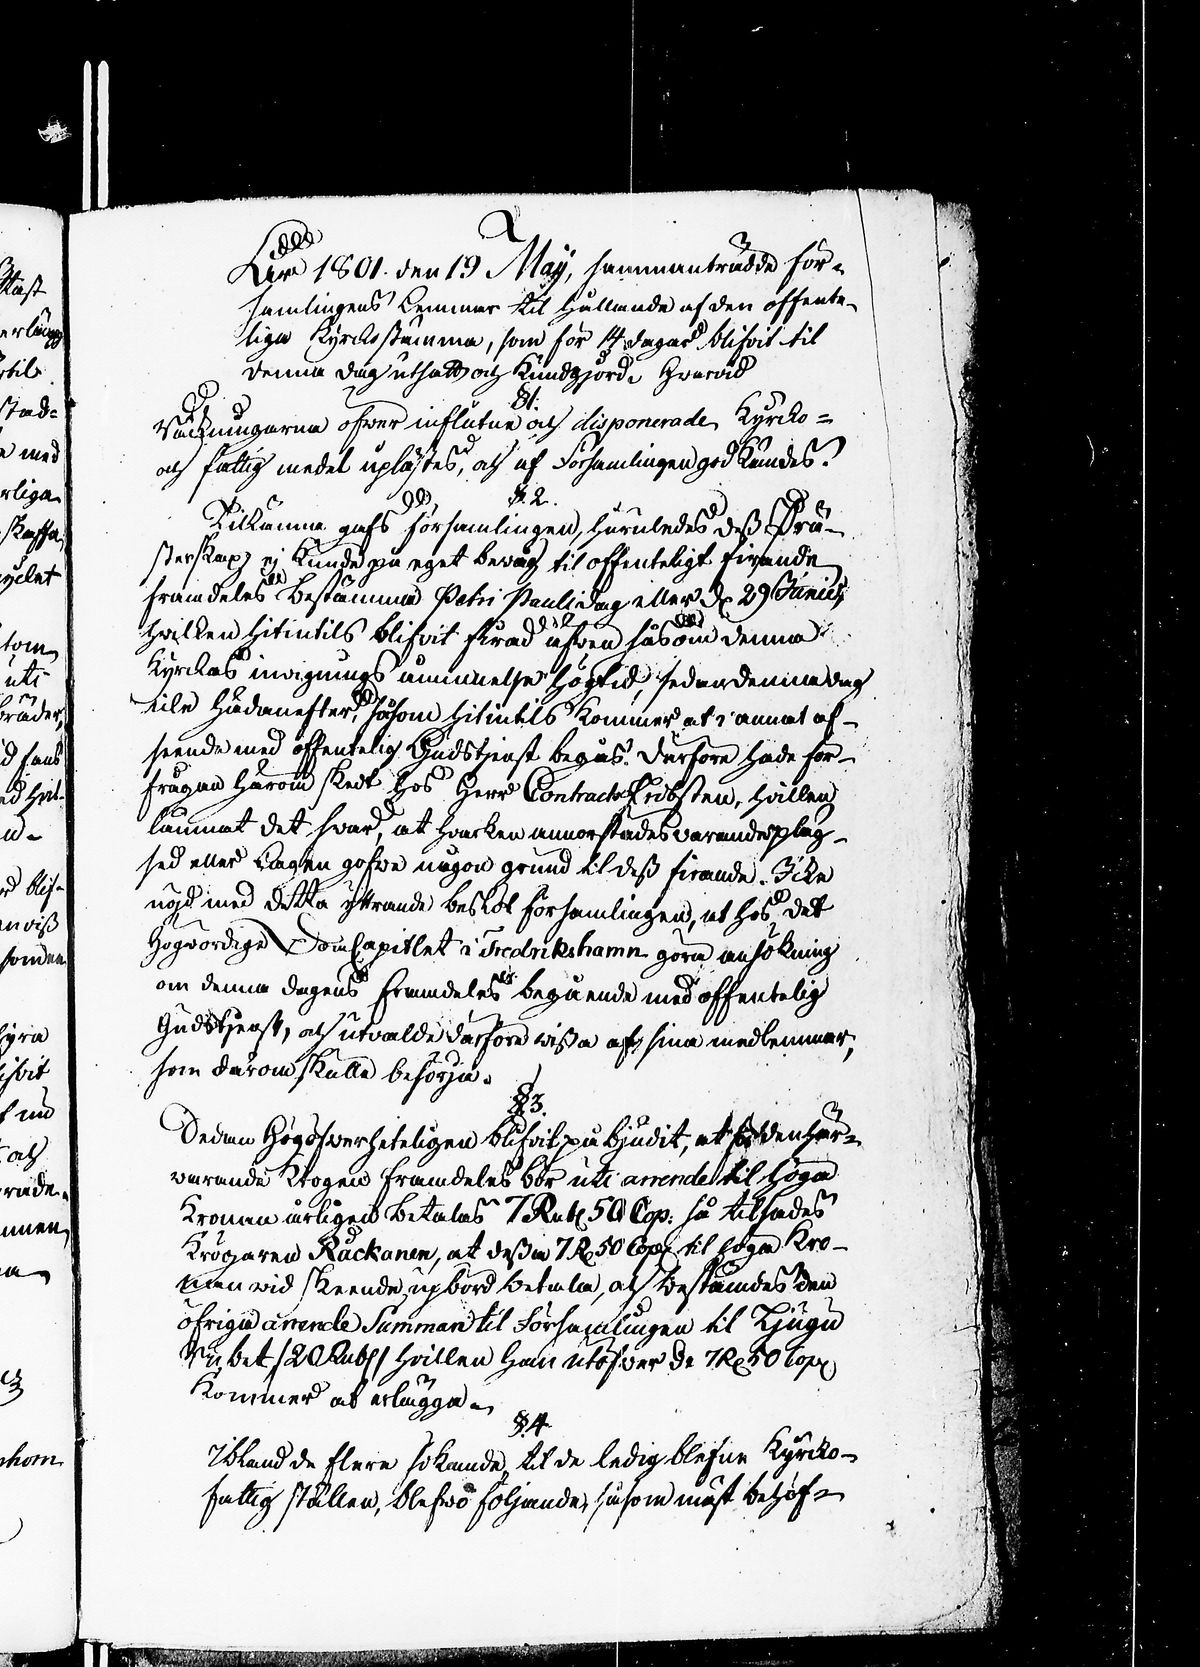 År 1801. den 19 May, sammanträdde för-
samlingens Lemmar til hållande af den offente-
liga Kyrkostämma, som för 14 dagar blifvit til
denna dag utsatt och Kundgjord. Hvarvid
§1.
Räkningarna öfver influtne och disponerade Kyrko=
och fattig medel uplästes, och af Församlingen godkändes.
§.2.
Tilkänna gafs församlingen, huruledes dess Prä-
sterskap ej kunde på eget bevåg til offenteligt firande
framdeles bestämma Petri Pauli dag eller d. 29 Junii,
hvilken hitintils blifvit firad äfven såsom denna
Kyrkas invignings åminnelse högtid, sedan denna dag
icke hädanefter, såsom hitintils kommer at i annat af-
seende med offentelig Gudstjenst begås. Därföre hade för-
frågan härom skedt hos Herr Contracts Probsten, hvilken
lämnat det svar, at hvarken annorstädes varande pläg-
sed eller Lagen gofve någon grund til dess firande. Icke
nögd med detta yttrande beslöt församlingen, at hos det
Högvördige DomCapitlet i Fredrikshamn göra ansökning
om denna dagens framdeles begående med offentelig
Gudstjenst, och utvalde därföre vissa af sina medlemmar,
som därom skulle besörja.
§3.
Sedan Högöfverheteligen blifvit påbjudit, at för den här-
varande Krogen framdeles bör uti arrende til höga
Kronan årligen betalas 7 Rub. 50 Cop: så tilsades
Krögaren Räckänen, at dessa 7 R. 50 Cop. til höga Kro-
nan vid skeende upbörd betala, och bestämdes den
öfriga arrende Summan til Församlingen til Tjugu
Rubel /20 Rub./ hvilken han utöfver de 7 R. 50 Cop.
kommer at erlägga.
§.4
Ibland de flere sökande til de ledig blefne Kyrko-
fattig ställen, blefvo följande, såsom mäst behöf-